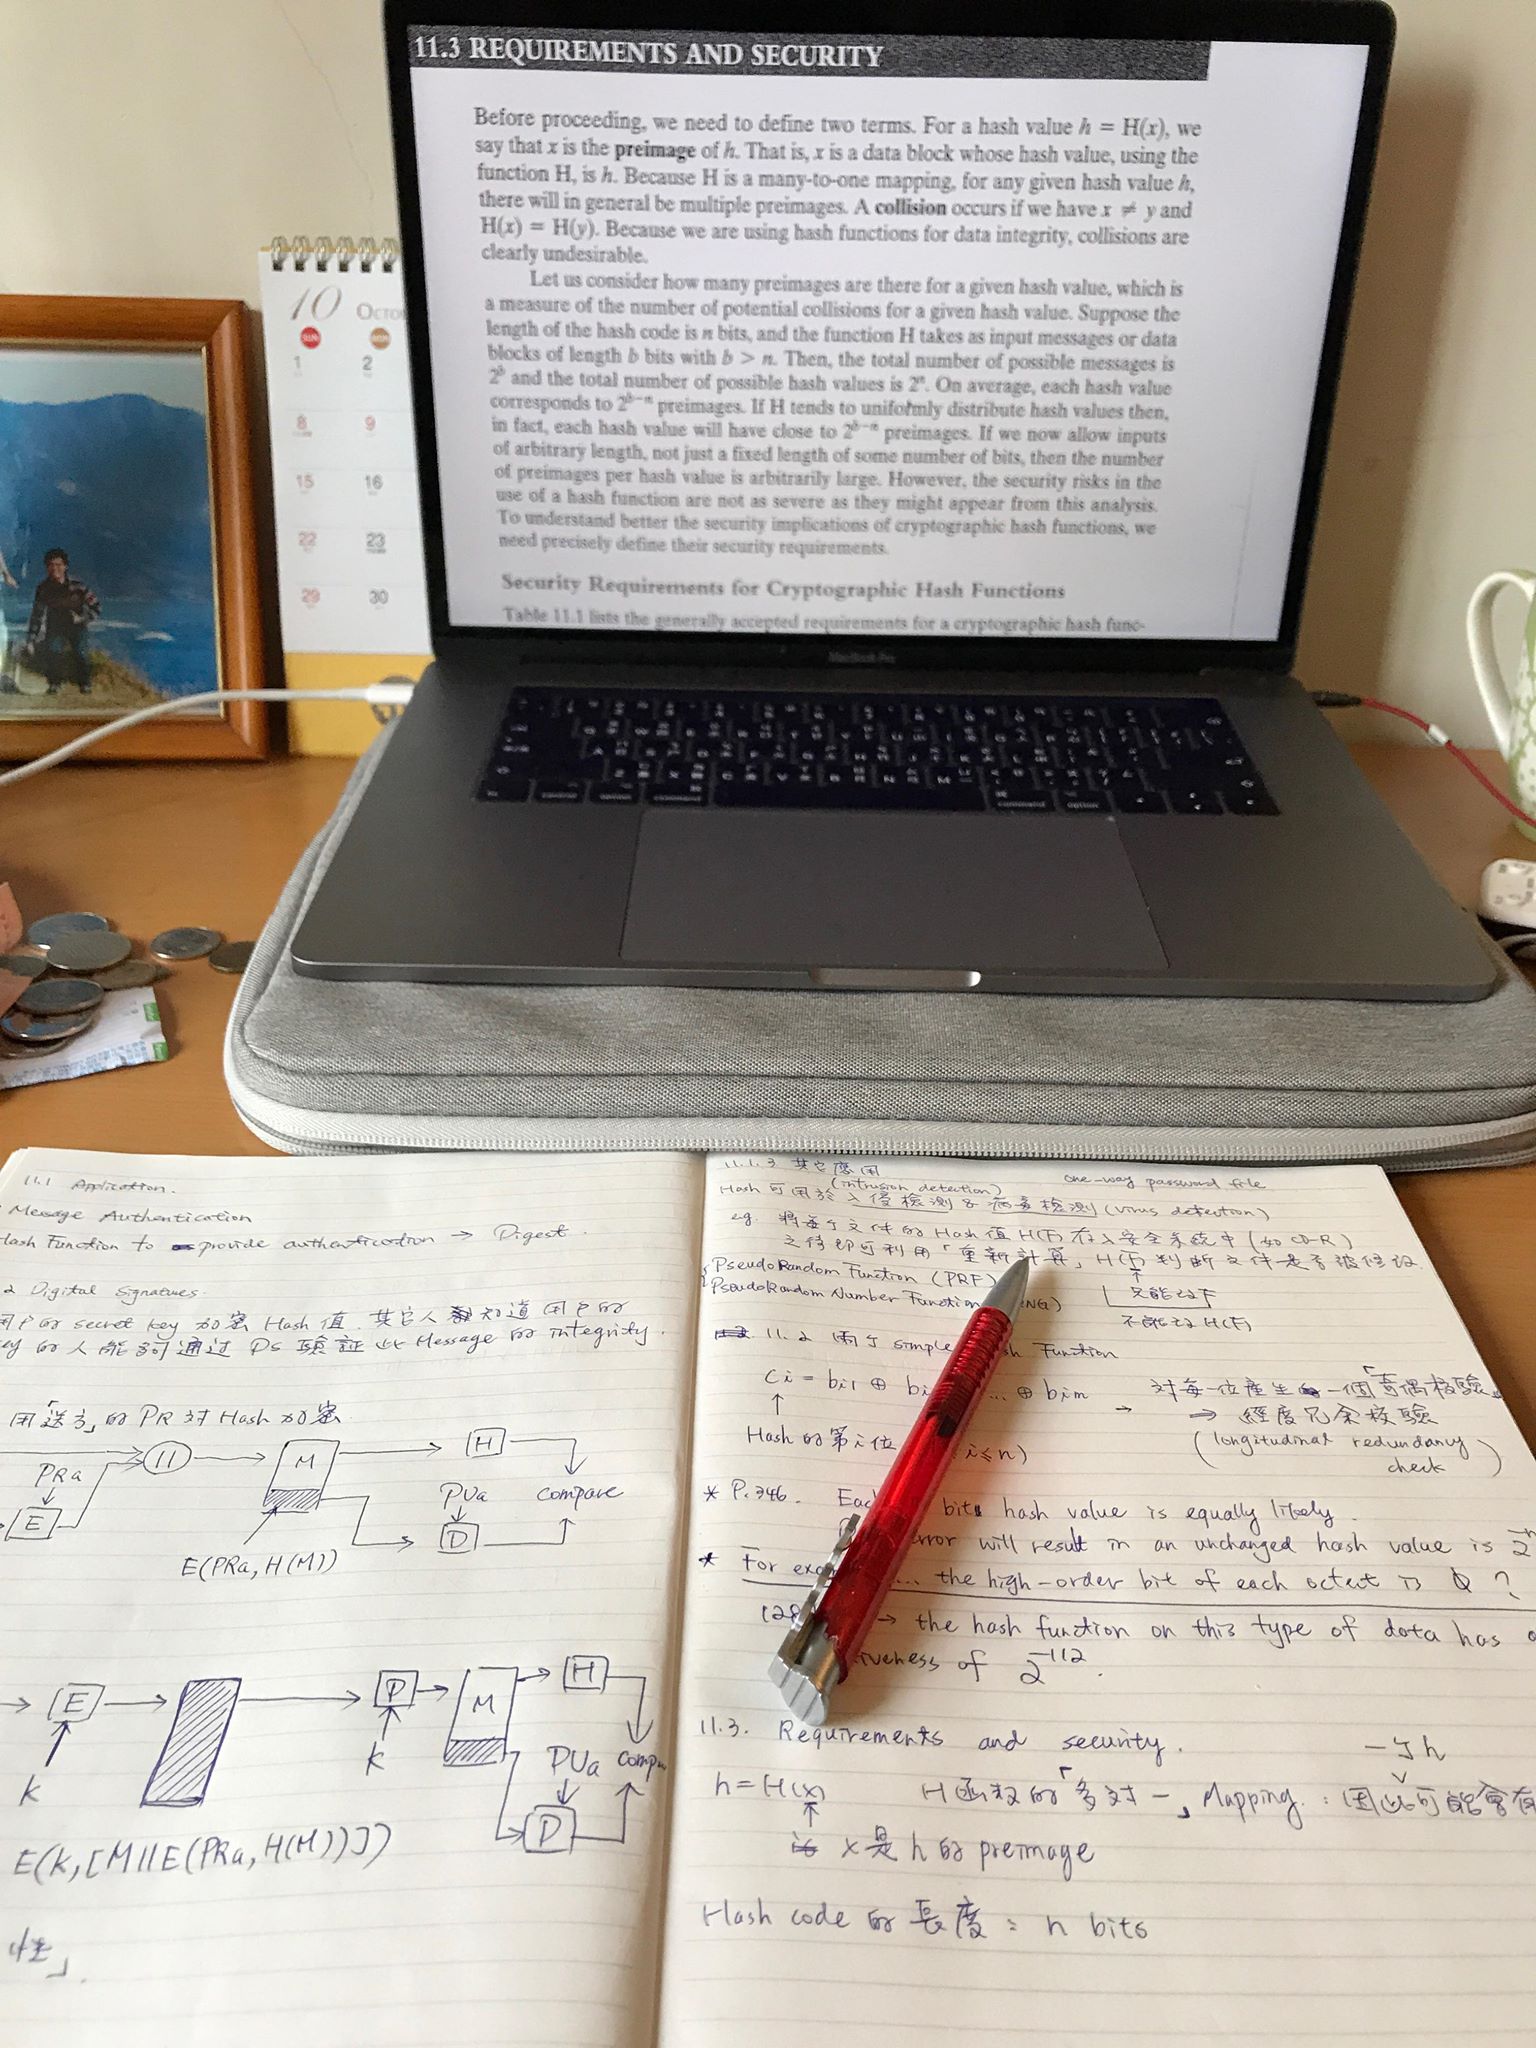 11.3 REQUIREMENTS AND SECURITY
Before proceeding, we need to define two terms. For a hash value h = H(x), we
say that x is the preimage of h. That is, x is a data block whose hash value, using the
function H, is h. Because H is a many-to-one mapping, for any given hash value h,
there will in general be multiple preimages. A collision occurs if we have x ≠ y and
H(x) = H(y). Because we are using hash functions for data integrity, collisions are
clearly undesirable.
Let us consider how many preimages are there for a given hash value, which is
a measure of the number of potential collisions for a given hash value. Suppose the
length of the hash code is n bits, and the function H takes as input messages or data
blocks of length b bits with b > n. Then, the total number of possible messages is
2ᵇ and the total number of possible hash values is 2ⁿ. On average, each hash value
corresponds to 2ᵇ⁻ⁿ preimages. If H tends to uniformly distribute hash values then,
in fact, each hash value will have close to 2ᵇ⁻ⁿ preimages. If we now allow inputs
of arbitrary length, not just a fixed length of some number of bits, then the number
of preimages per hash value is arbitrarily large. However, the security risks in the
use of a hash function are not as severe as they might appear from this analysis.
To understand better the security implications of cryptographic hash functions, we
need precisely define their security requirements.
Security Requirements for Cryptographic Hash Functions
Table 11.1 lists the generally accepted requirements for a cryptographic hash func-
MacBook Pro
10 OCTO
SUN
1 2
8 9
15 16
22 23
29 30
control option command command option
11.1 Application.
Message Authentication
Hash Function to provide authentication → Digest.
2 Digital Signatures.
secret key 加密 Hash 值. 其它人 知道 用戶的
的人能夠通過 DS 驗証此 Message 的 integrity.
用「送方」的 PR 對 Hash 加密
PRa
E
||
M
H
PUa
D
compare
E(PRa, H(M))
E
K
D
K
M
H
PUa
D
E(K, [M||E(PRa, H(M))])
性」.
11.1.3 其它應用
(intrusion detection) one-way password file
Hash 可用於入侵檢測 & 病毒檢測 (virus detection)
eg. 將每个文件的 Hash 值 H(F) 存入安全系統中 (如 CD-R)
之後即可利用「重新計算」H(F) 判斷文件是否被修改.
PseudoRandom Function (PRF)
PseudoRandom Number Function
只能改 F
不能改 H(F)
11.2 兩个 simple Function
Ci = bi1 ⊕ ... ⊕ bim → 對每一位產生一個「奇偶校驗」
→ 經度冗余校驗
Hash 的第 i 位 i ≤ n) (longitudinal redundancy
check)
* P.346. bits hash value is equally likely.
error will result in an unchanged hash value is
* For ... the high-order bit of each octet is 0 ?
→ the hash function on this type of data has
of 2⁻¹¹²
11.3. Requirements and security.
一个 h
h = H(x) H 函数的「多対一」Mapping. : 因此可能會有
x 是 h 的 preimage
Hash code 的長度 : n bits